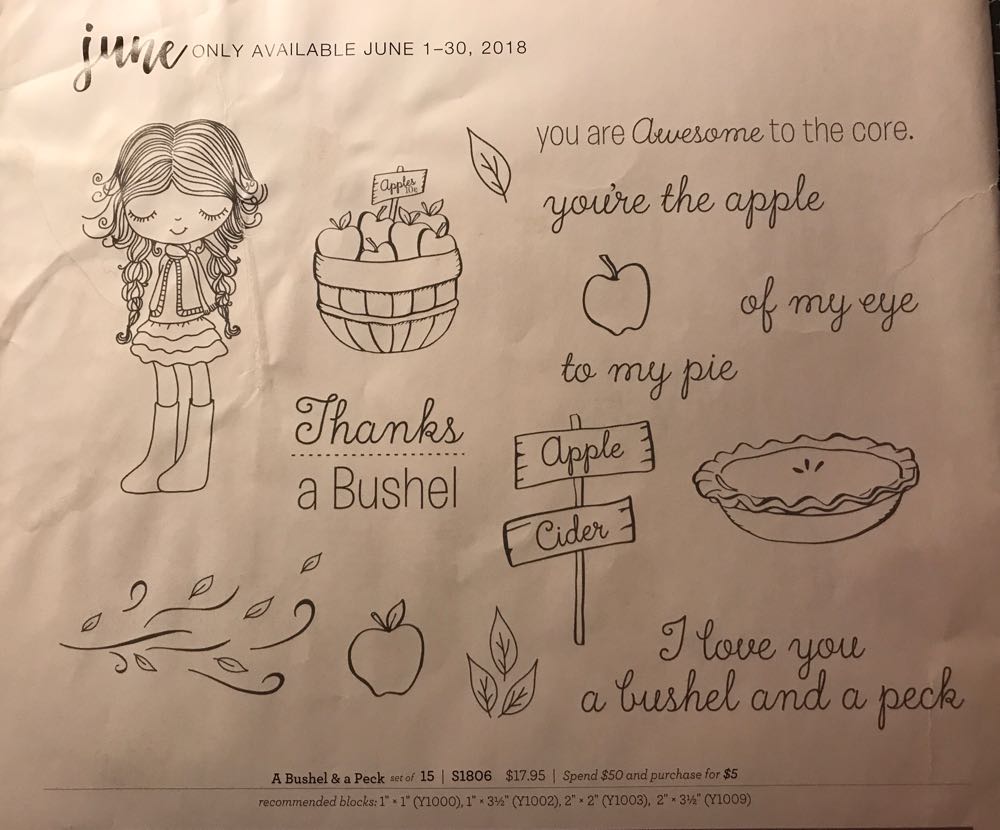 june ONLY AVAILABLE JUNE 1–30, 2018
you are Awesome to the core.
Apples
10¢
you're the apple
of my eye
to my pie
Thanks
a Bushel
Apple
Cider
I love you
a bushel and a peck
A Bushel & a Peck set of 15 | S1806 $17.95 | Spend $50 and purchase for $5
recommended blocks: 1" × 1" (Y1000), 1" × 3½" (Y1002), 2" × 2" (Y1003), 2" × 3½" (Y1009)